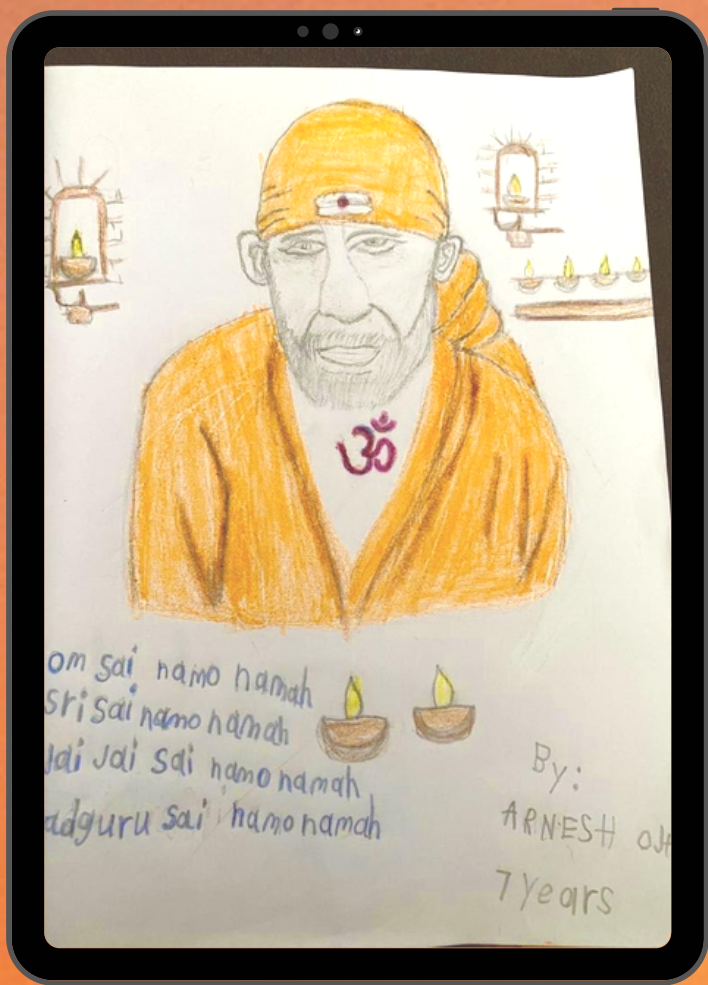 ॐ
om sai namo namah
Sri Sai namo namah
Jai Jai Sai namo namah
adguru Sai namo namah
By:
ARNESH
7 Years